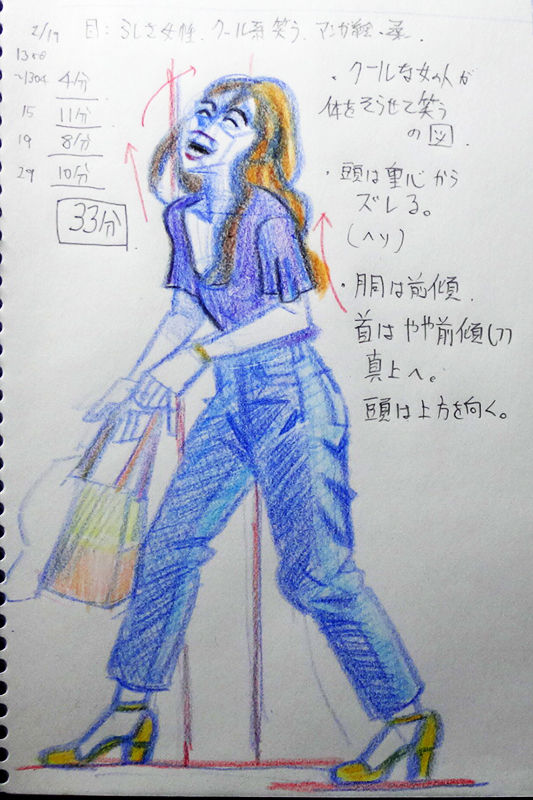 2/19 目:らしさ女性、クール系笑う、マンガ絵・
1350
~1304 4分
15 11分
19 8分
29 10分
33分
・クールな女の人が
体をそらせて笑う
の図.
・頭は重心から
ズレる。
(ヘソ)
・胴は前傾.
首はやや前傾(ナナメ)
真上へ。
頭は上方を向く。